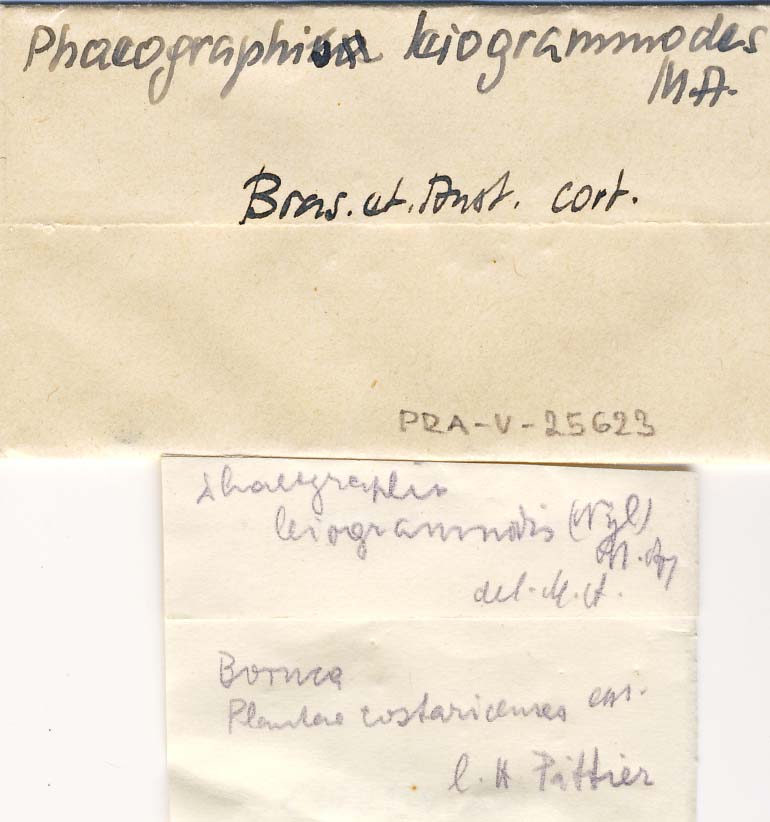 Phaeographina leiogrammodes
M.A.
Bras. et. Aust. cort.
PRA-V-25623
Phaeographis
leiogrammodis (Nyl)
M. Ag
det. M. A.
Boruca
Plantae costaricenses exs.
l. H Pittier